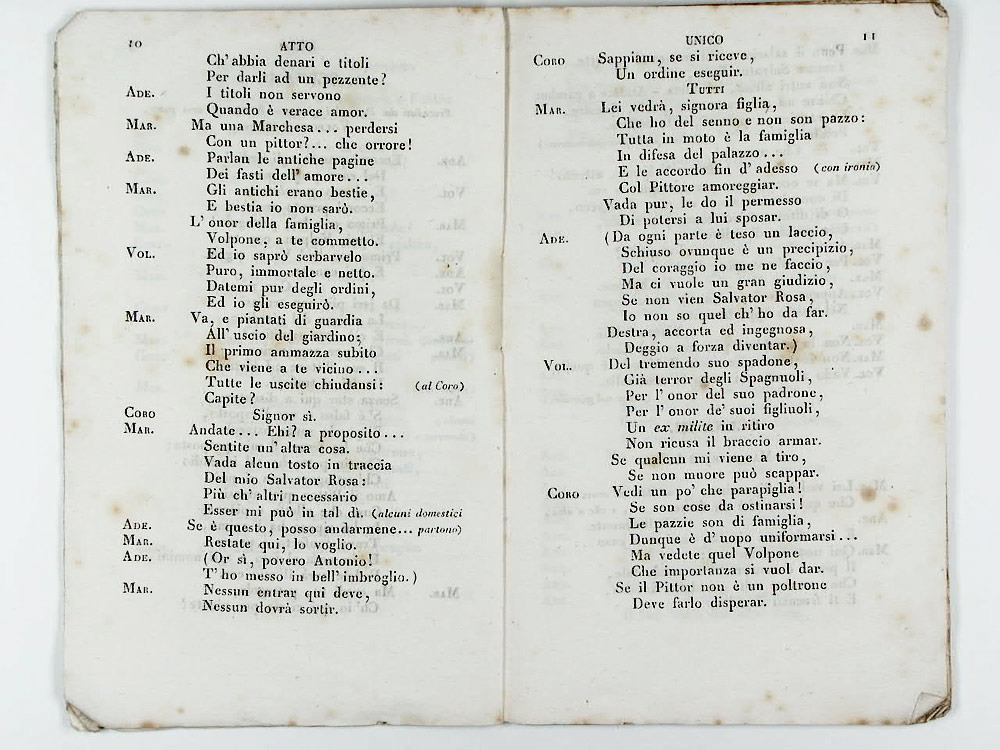 10
ATTO
Ch' abbia denari e titoli
Per darli ad un pezzente?
ADE. I titoli non servono
Quando è verace amor.
MAR. Ma una Marchesa... perdersi
Con un pittor?... che orrore!
ADE. Parlan le antiche pagine
Dei fasti dell' amore...
MAR. Gli antichi erano bestie,
E bestia io non sarò.
L' onor della famiglia,
Volpone, a te commetto.
VOL. Ed io saprò serbarvelo
Puro, immortale e netto.
Datemi pur degli ordini,
Ed io gli eseguirò.
MAR. Va, e piantati di guardia
All' uscio del giardino;
Il primo ammazza subito
Che viene a te vicino...
Tutte le uscite chiudansi: (al Coro)
Capite?
CORO Signor sì.
MAR. Andate... Ehi? a proposito...
Sentite un' altra cosa.
Vada alcun tosto in traccia
Del mio Salvator Rosa:
Più ch' altri necessario
Esser mi può in tal dì. (alcuni domestici
ADE. Se è questo, posso andarmene... partono)
MAR. Restate qui, lo voglio.
ADE. (Or sì, povero Antonio!
T' ho messo in bell' imbroglio.)
MAR. Nessun entrar qui deve,
Nessun dovrà sortir.
UNICO
11
CORO Sappiam, se si riceve,
Un ordine eseguir.
TUTTI
MAR. Lei vedrà, signora figlia,
Che ho del senno e non son pazzo:
Tutta in moto è la famiglia
In difesa del palazzo...
E le accordo fin d' adesso (con ironia)
Col Pittore amoreggiar.
Vada pur, le do il permesso
Di potersi a lui sposar.
ADE. (Da ogni parte è teso un laccio,
Schiuso ovunque è un precipizio,
Del coraggio io me ne faccio,
Ma ci vuole un gran giudizio,
Se non vien Salvator Rosa,
Io non so quel ch' ho da far.
Destra, accorta ed ingegnosa,
Deggio a forza diventar.)
VOL. Del tremendo suo spadone,
Già terror degli Spagnuoli,
Per l' onor del suo padrone,
Per l' onor de' suoi figliuoli,
Un ex milite in ritiro
Non ricusa il braccio armar.
Se qualcun mi viene a tiro,
Se non muore può scappar.
CORO Vedi un po' che parapiglia!
Se son cose da ostinarsi!
Le pazzie son di famiglia,
Dunque è d' uopo uniformarsi...
Ma vedete quel Volpone
Che importanza si vuol dar.
Se il Pittor non è un poltrone
Deve farlo disperar.